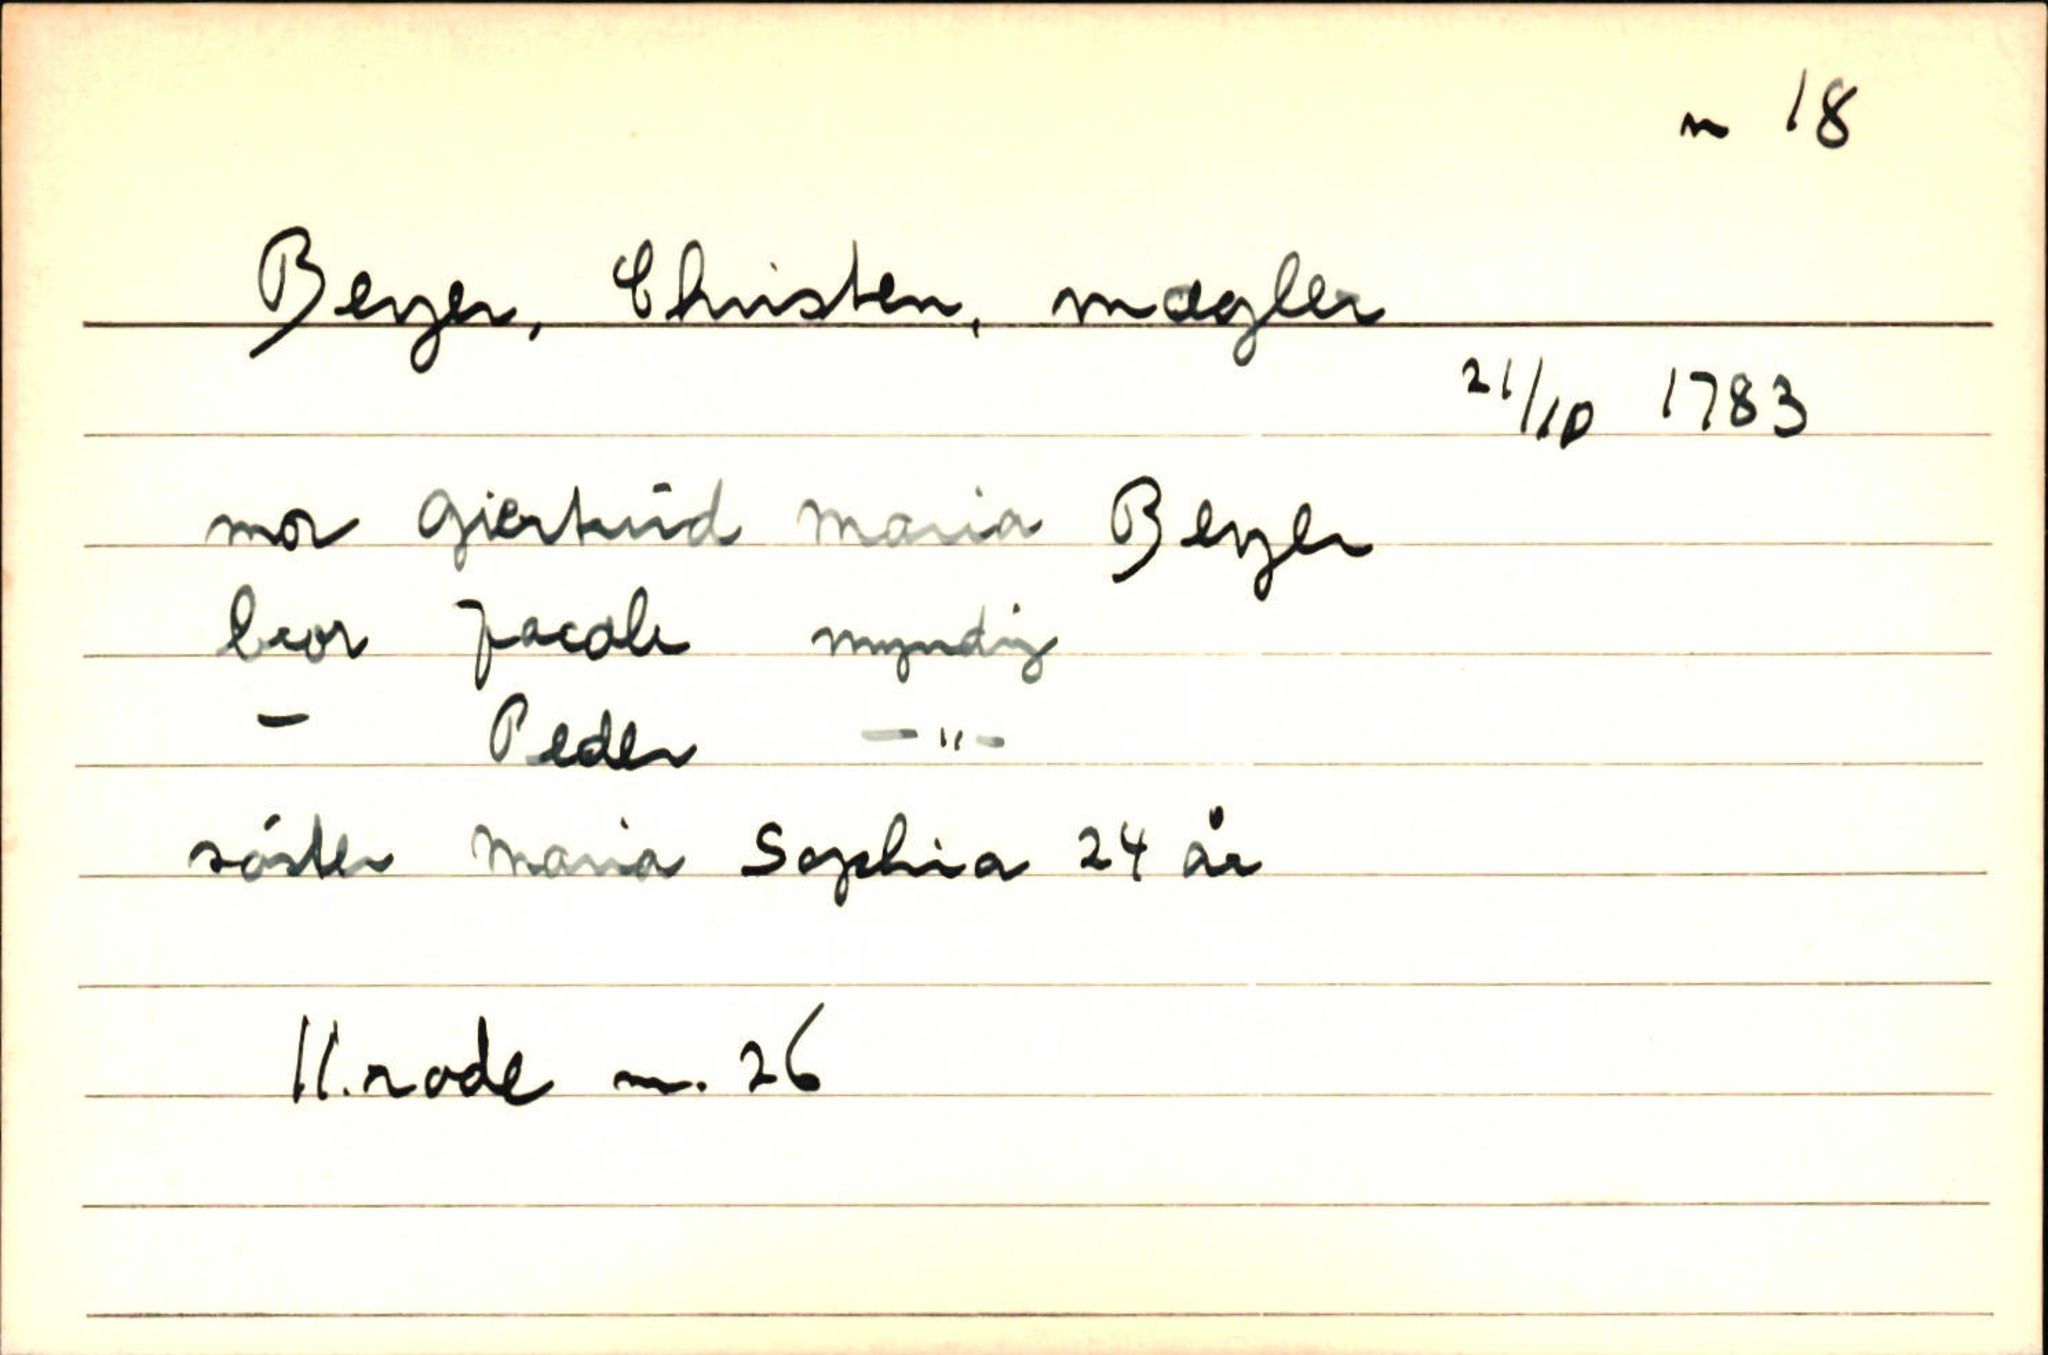 n 18
Beyer, Christen, mægler
21/10 1783
mor Giertrud Maria Beyer
bror Jacob myndig
- Peder -"-
søster Maria Sophia 24 år
11. rode n. 26